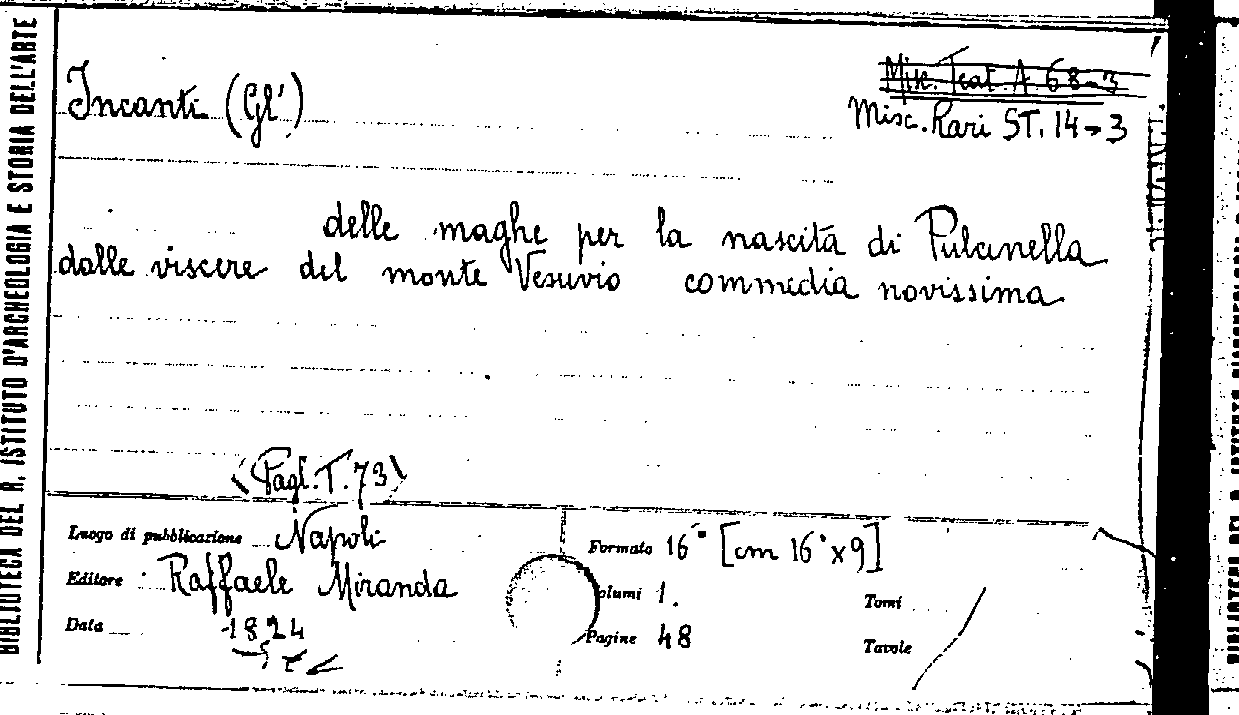 BIBLIOTECA DEL R. ISTITUTO D'ARCHEOLOGIA E STORIA DELL'ARTE
Incanti (Gl')
Misc. Teat. A. 68-3
Misc. Rari ST. 14-3
delle maghe per la nascita di Pulcinella
dalle viscere del monte Vesuvio commedia novissima
(Pagl. T. 73)
Luogo di pubblicazione Napoli
Editore Raffaele Miranda
Data 1824
Formato 16° [cm 16 x 9]
Volumi 1.
Pagine 48
Tomi
Tavole